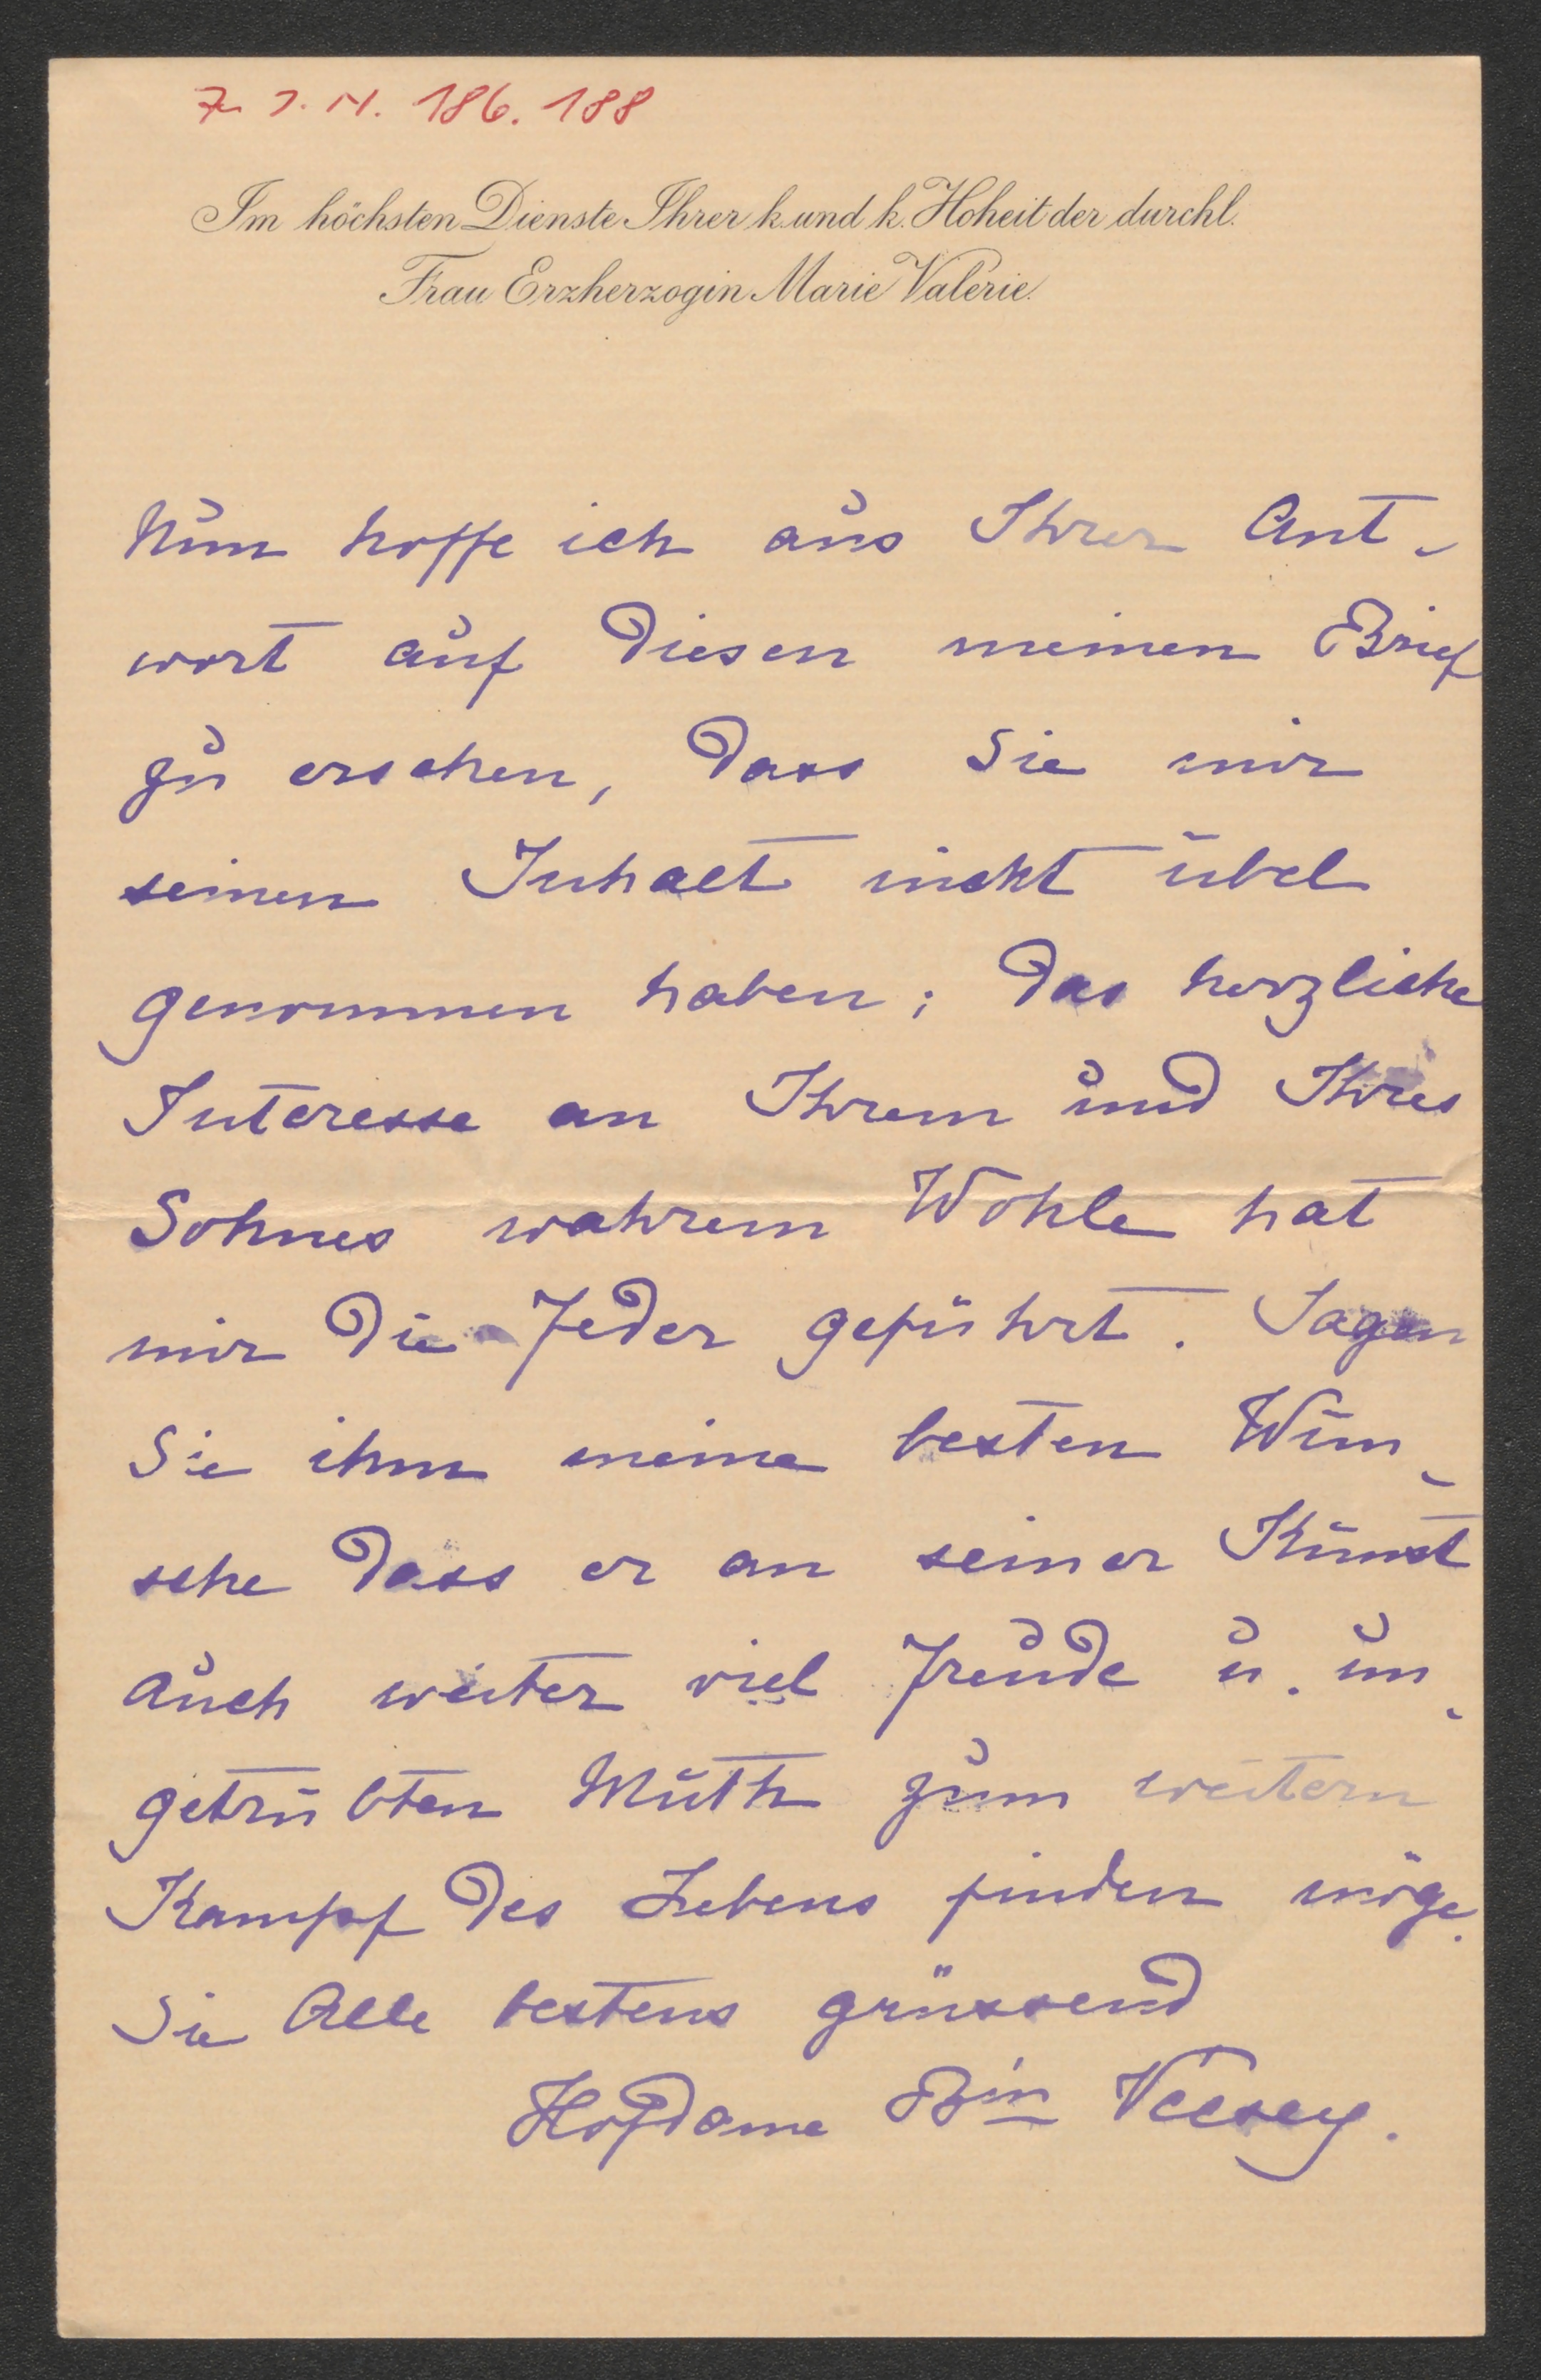 Z. I. N. 186.188
Im höchsten Dienste Ihrer k. und k. Hoheit der durchl.
Frau Erzherzogin Marie Valérie.
Nun hoffe ich aus Ihrer Ant-
wort auf diesen meinen Brief
zu ersehen, dass Sie mir
seinen Inhalt nicht übel
genommen haben; das herzliche
Interesse an Ihrem und Ihres
Sohnes wahrem Wohle hat
mir die Feder geführt. Sagen
Sie ihm meine besten Wün-
sche dass er an seiner Kunst
auch weiter viel Freude u. un-
getrübten Muth zum weitern
Kampf des Lebens finden möge.
Sie Alle bestens grüssend
Hofdame Bin Vécsey.